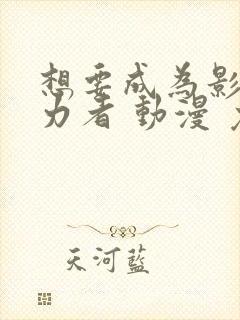 想要成為影
力者 動漫
天河藍